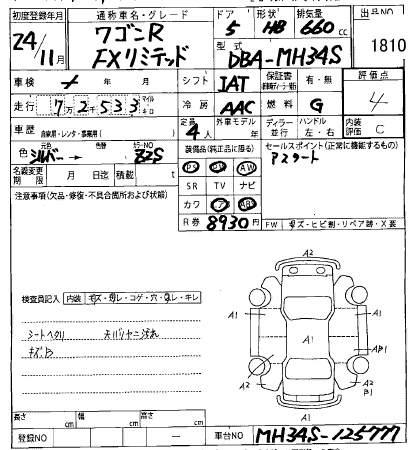 初度登録年月 通称車名・グレード ドア 形状 排気量 出品NO
24/11月 ワゴンR 5 HB 660cc 1810
FXリミテッド 型式 DBA-MH34S
車検 年 月 シフト IAT 保証書 有・無 評価点
走行 7万2533 マイル キロ 冷房 AAC 燃料 G 4
車歴 自家用・レンタ・事業用( ) 定員 4人 外車モデル 年 ディーラー 並行 ハンドル 左・右 内装評価 C
色 元色 シルバー→ 色替 カラーNO Z2S 装備品(純正品に限る) セールスポイント(正常に機能するもの)
PS PW AW Pスタート
名義変更期限 月 日迄 積載 t SR TV ナビ
注意事項(欠品・修復・不具合箇所および状態) カワ ア ABS
R券 8930円 FW キズ・ヒビ割・リペア跡・X要
A2
検査員記入 内装 キズ・汚レ・コゲ・穴・切レ・キレ
A1 A1 A1
シートヘタリ 天バリヤニ汚れ
キズB A1 AB1
A2 A2
A1
長さ cm 幅 cm 高さ cm
登録NO — 車台NO MH34S-125777